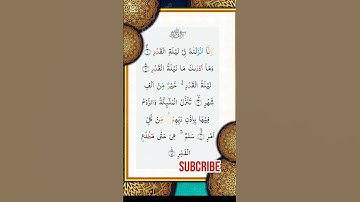 إِنَّا أَنْزَلْنَاهُ فِي لَيْلَةِ الْقَدْرِ ۝١
وَمَا أَدْرَاكَ مَا لَيْلَةُ الْقَدْرِ ۝٢
لَيْلَةُ الْقَدْرِ خَيْرٌ مِنْ أَلْفِ
شَهْرٍ ۝٣ تَنَزَّلُ الْمَلَائِكَةُ وَالرُّوحُ
فِيهَا بِإِذْنِ رَبِّهِمْ مِنْ كُلِّ
أَمْرٍ ۝٤ سَلَامٌ هِيَ حَتَّى مَطْلَعِ
الْفَجْرِ ۝٥
SUBSCRIBE